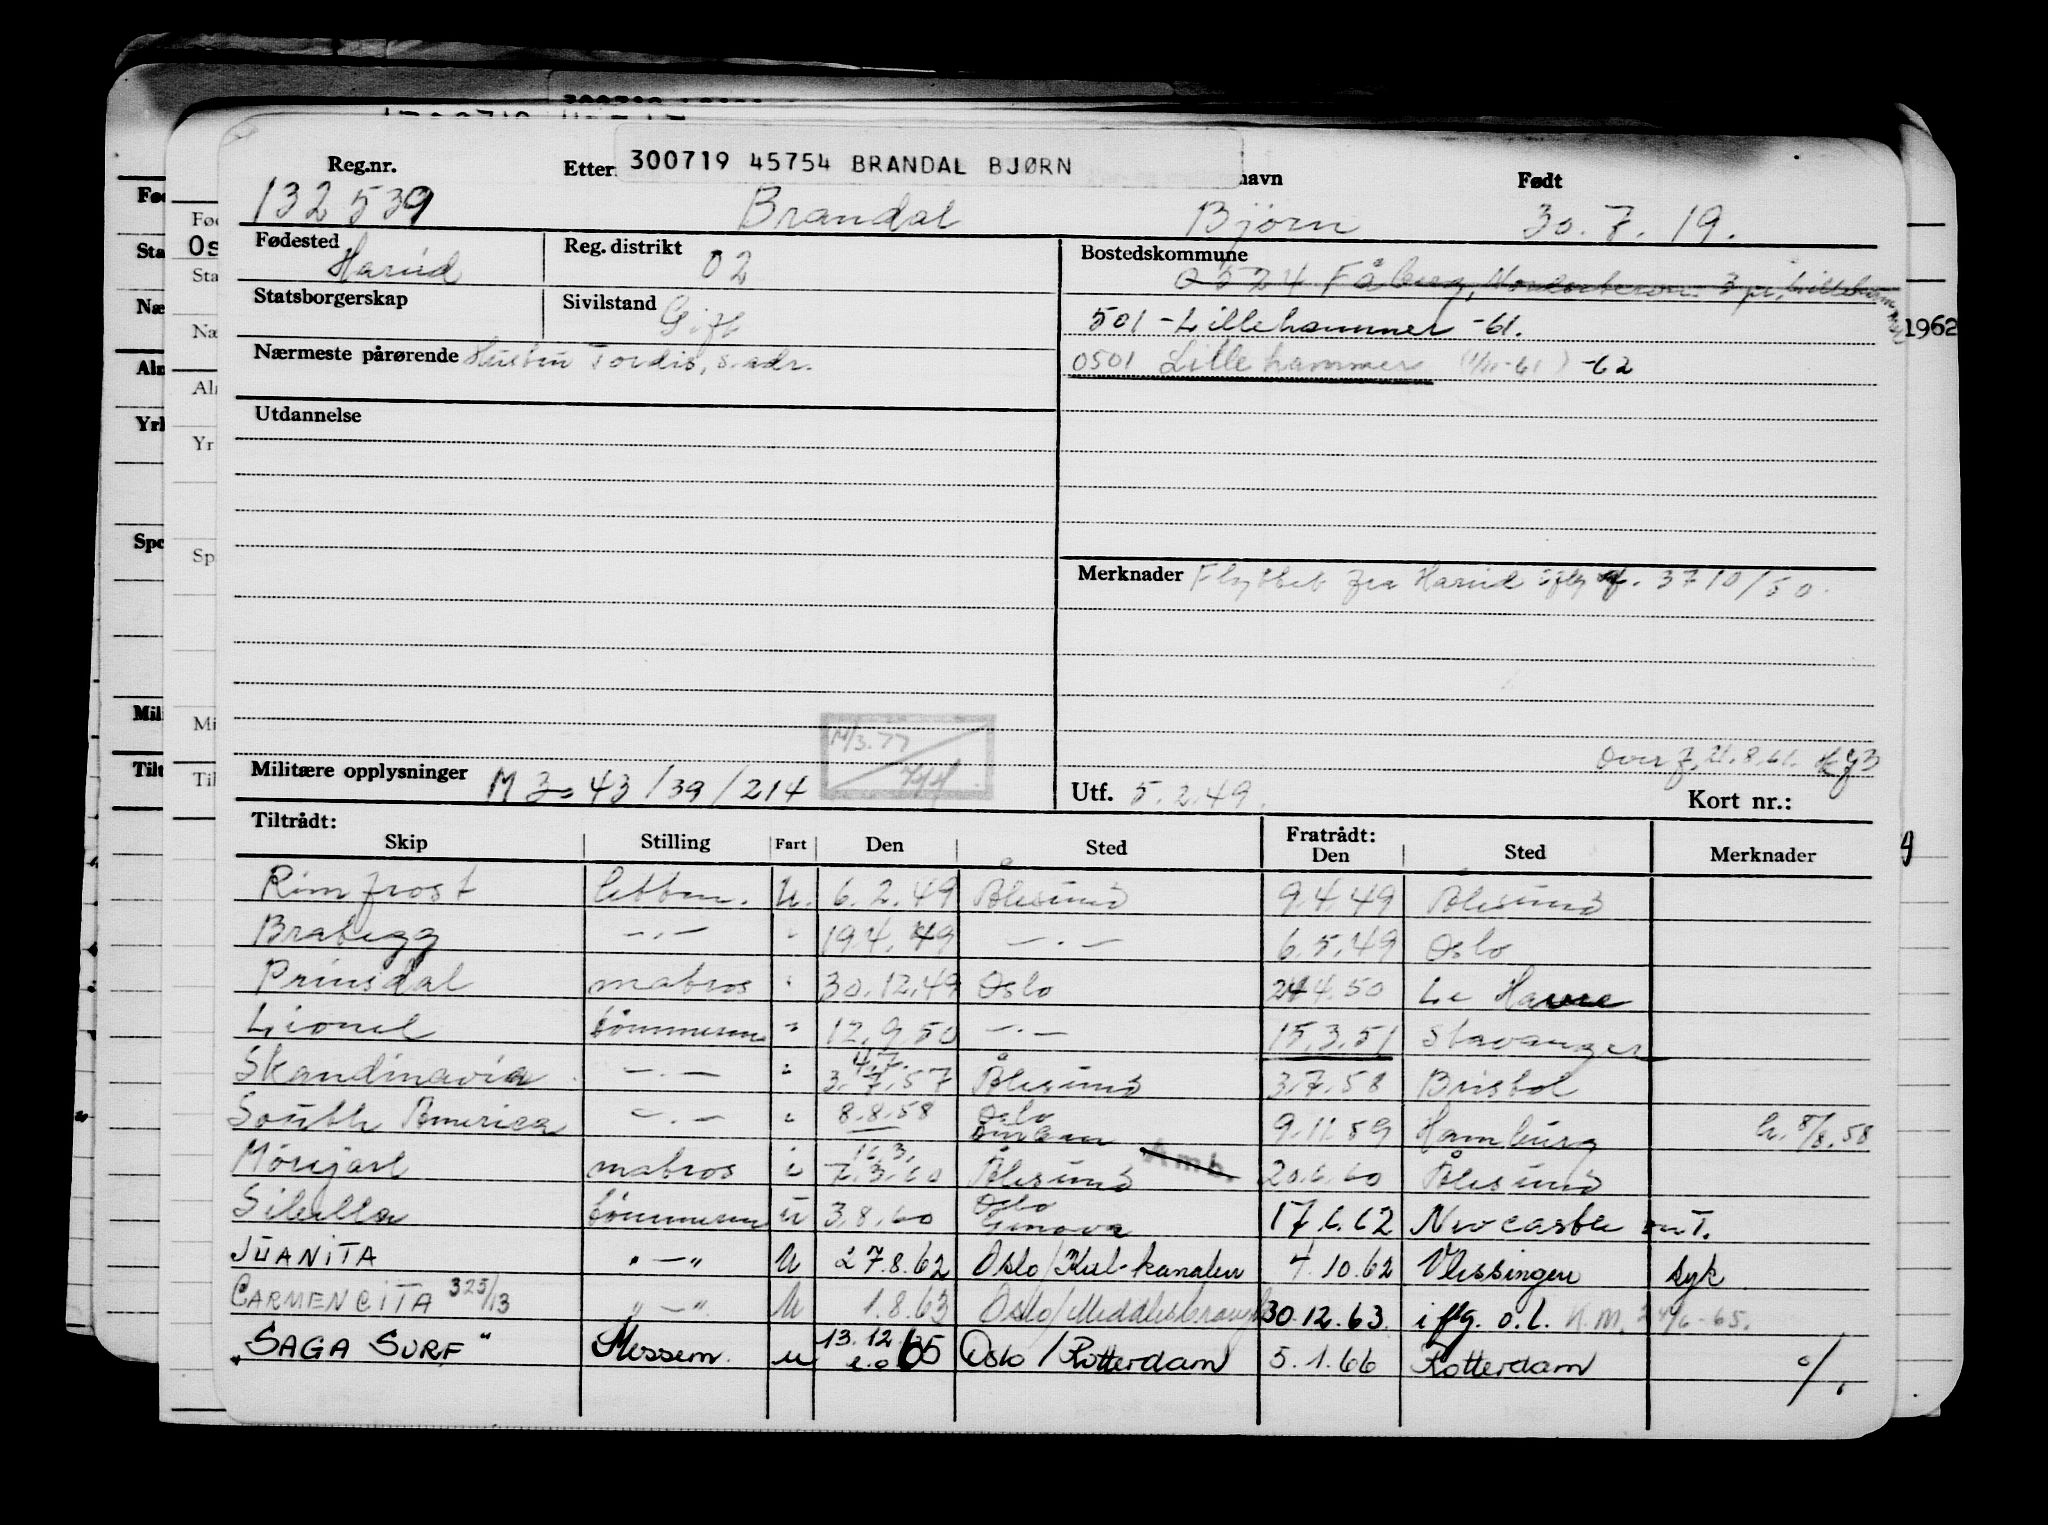 300719 45754 BRANDAL BJØRN
Reg.nr. Etter navn Født
132539 Brandal Bjørn 30.7.19.
Fødested Harid Reg. distrikt 02 Bostedskommune
0524 Fåberg, 3 pr, Lillehammer
Statsborgerskap Sivilstand Gift 501 - Lillehammer -61.
1962
Nærmeste pårørende Hustru Tordis, s. adr. 0501 Lillehammer (1/11-61) -62
Utdannelse
Merknader Flyttet fra Harid iflg 3710/50.
M/3.77
Overf. 21.8.61.
Militære opplysninger M 43/39/214 Utf. 5.2.49. Kort nr.:
Tiltrådt: Fratrådt:
Skip Stilling Fart Den Sted Den Sted Merknader
Rimfrost lettm. u. 6.2.49 Ålesund 9.4.49 Ålesund
Brategg —.— " 19.4.49 —.— 6.5.49 Oslo
Prinsdal matros " 30.12.49 Oslo 24.4.50 Le Havre
Lionel tømmerm " 12.9.50 —.— 15.3.51 Stavanger
Skandinavia —.— " 3.7.57 4.7. Ålesund 3.7.58 Bristol
South America —.— " 8.8.58 Oslo 9.11.59 Hamburg h. 8/8.58
Mørejarl matros i 7.3.60 16.3. Ålesund Amb. 20.6.60 Ålesund
Sibella tømmerm u 3.8.60 Oslo Genova 17.6.62 Newcastle on T.
JUANITA "—" u 27.8.62 Oslo/Kiel-kanalen 4.10.62 Vlissingen syk
CARMENCITA 325/13 "—" u 1.8.63 Oslo/Middlesbrough 30.12.63. iflg. o.l. N.M. 24/6-65.
"SAGA SURF" Messem. u 13.12.65 Oslo/Rotterdam 5.1.66 Rotterdam